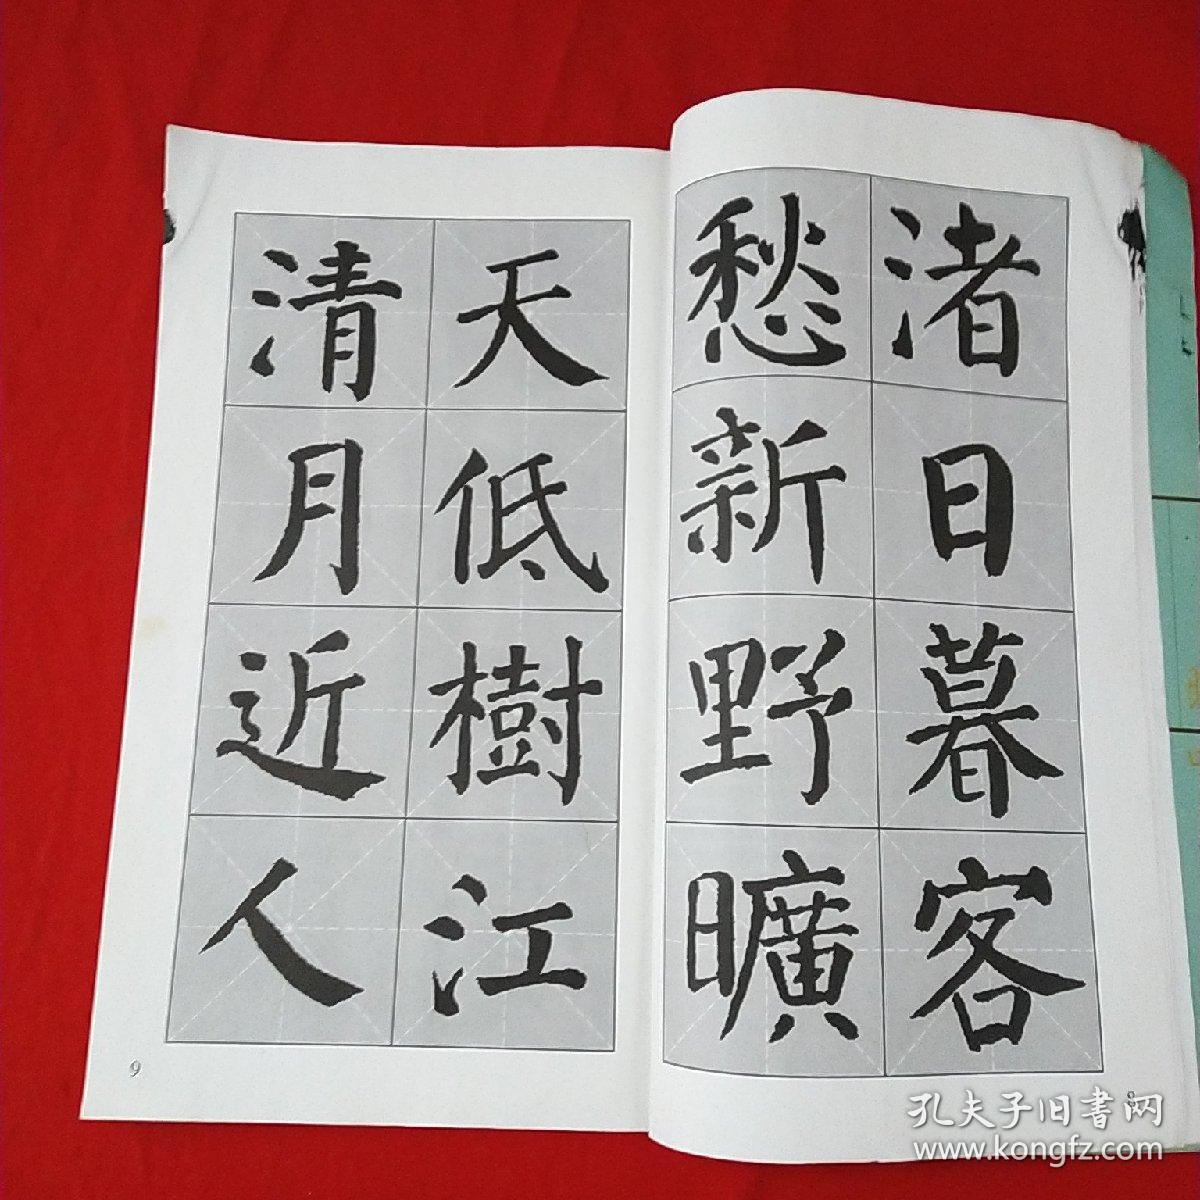 渚日暮客
愁新野曠
天低樹江
清月近人
8
9
孔夫子旧书网
www.kongfz.com